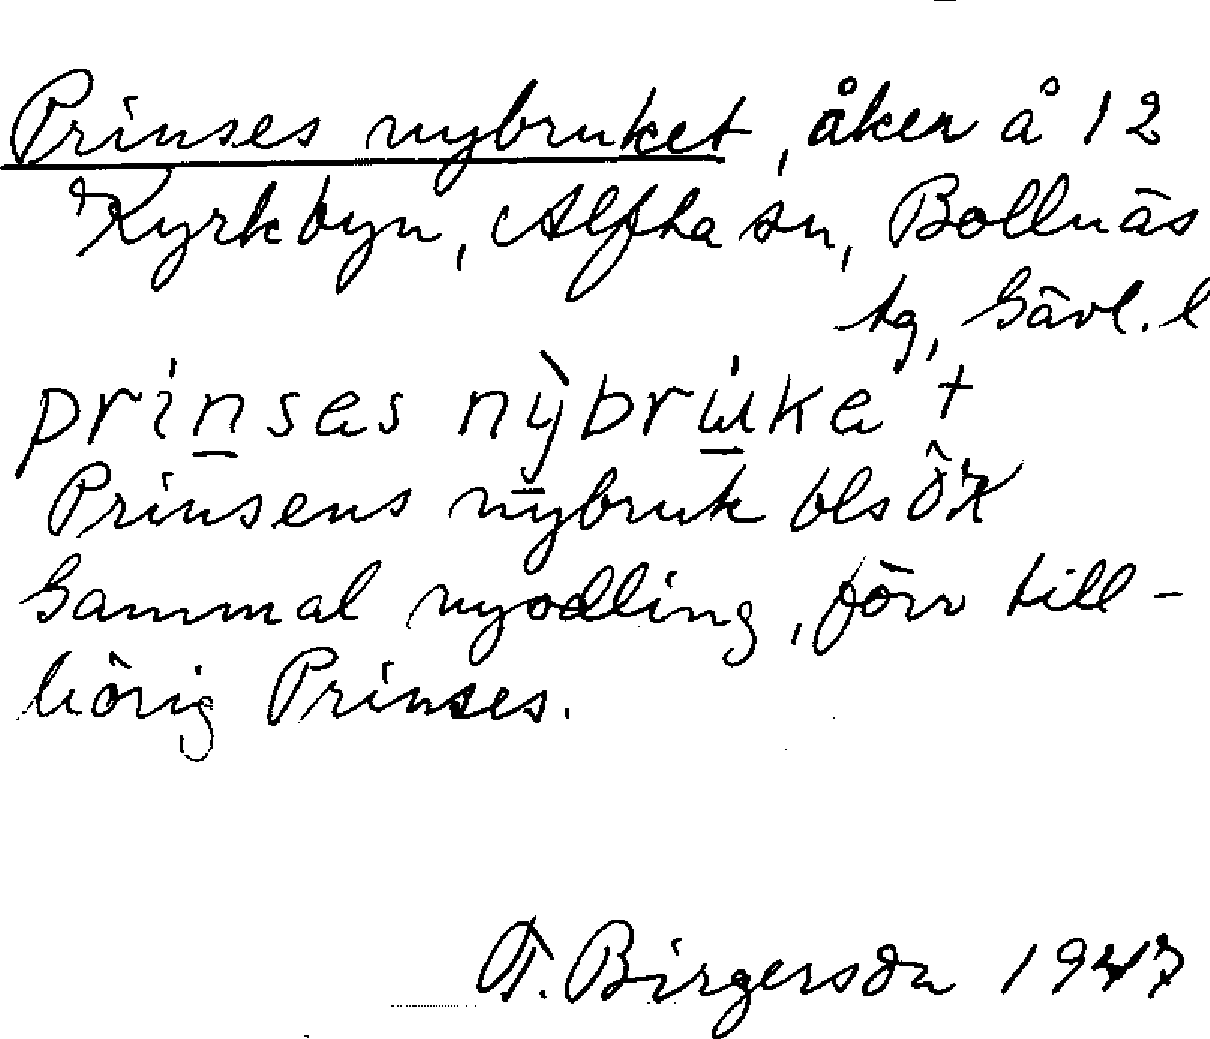 Prinses nybruket, åker å 12
Kyrkbyn, Alfta sn, Bollnäs
tg, Gävl. l
prinses nỳbruka +
Prinsens nybruk bls öX
Gammal nyodling, förr till-
hörig Prinses.
T. Birgerson 1947